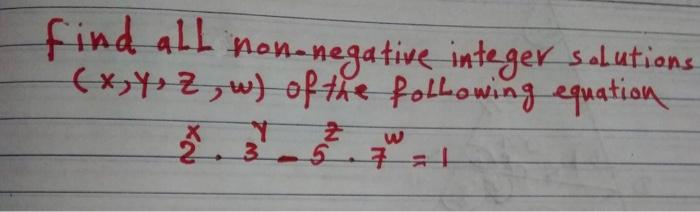 find all non-negative integer solutions
(x,y,z,w) of the following equation
2^x . 3^y - 5^z . 7^w = 1